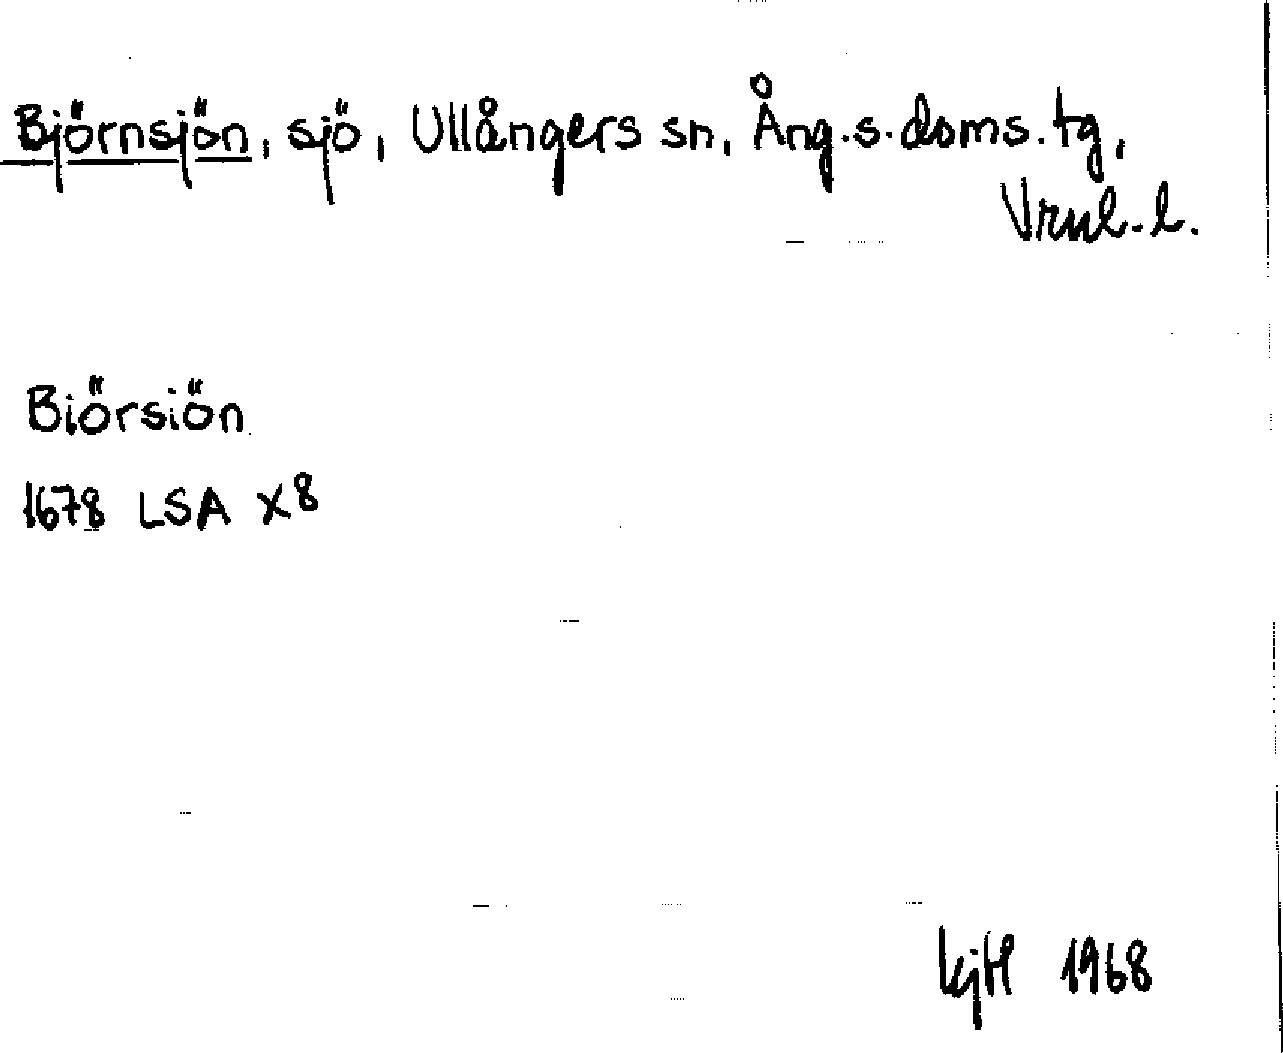 Björnsjön, sjö, Ullångers sn, Ång.s.doms.tg,
Vrnl. l.
Biörsiön
1678 LSA X8
1968